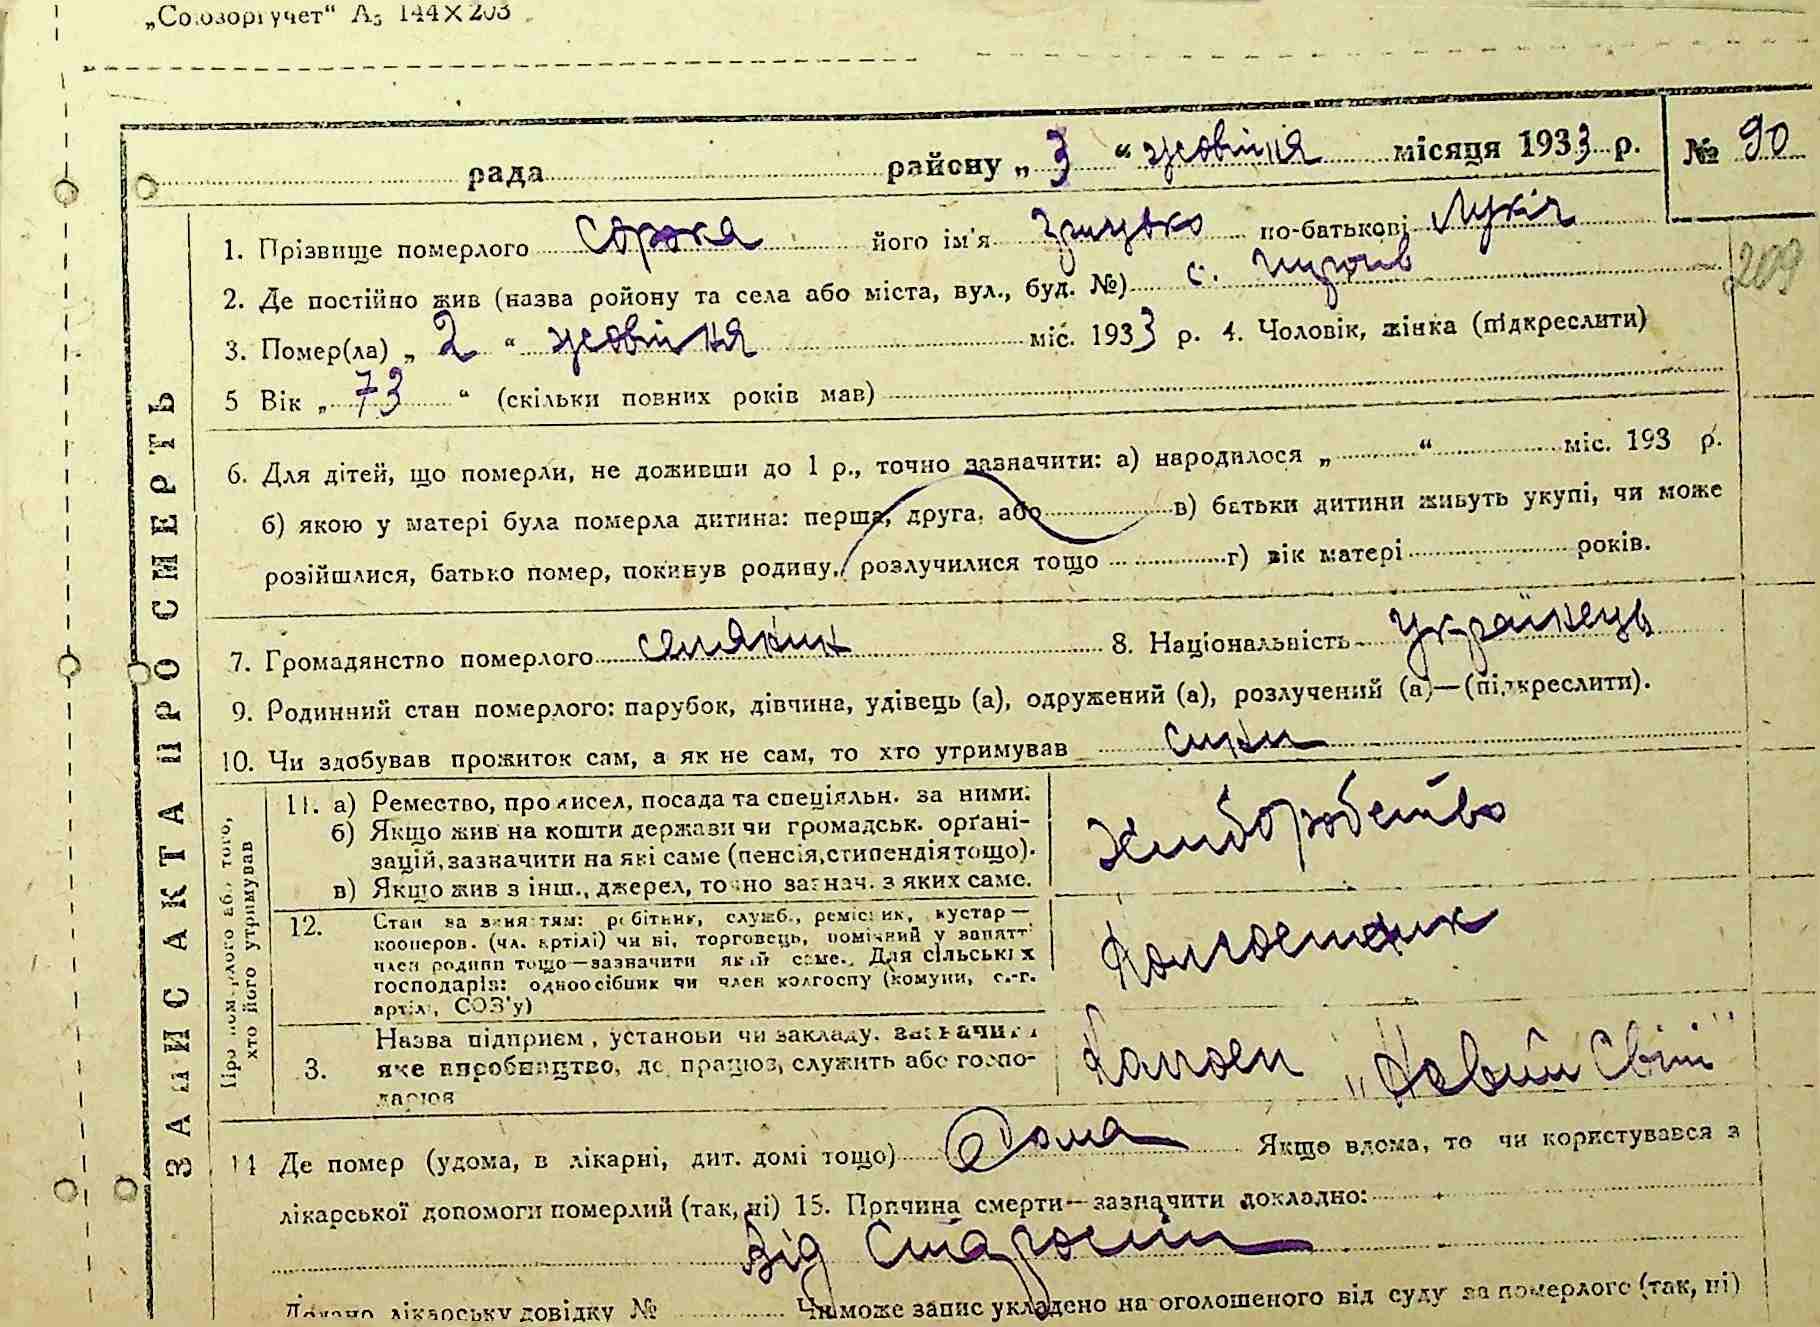 „Союзоргучет“ А5 144×203
рада району „ 3 “ жовтня місяця 1933 р. № 90
1. Прізвище померлого Сорока його ім'я Грицько по-батькові Лукіч
209
2. Де постійно жив (назва ройону та села або міста, вул., буд. №) с.
3. Помер(ла) „ 2 “ жовтня міс. 1933 р. 4. Чоловік, жінка (підкреслити)
5 Вік „ 73 “ (скільки повних років мав)
6. Для дітей, що померли, не доживши до 1 р., точно зазначити: а) народилося „ “ міс. 193 р.
б) якою у матері була померла дитина: перша, друга, або в) батьки дитини живуть укупі, чи може
розійшлися, батько помер, покинув родину, розлучилися тощо г) вік матері років.
7. Громадянство померлого селянин 8. Національність Українець
9. Родинний стан померлого: парубок, дівчина, удівець (а), одружений (а), розлучений (а)—(підкреслити).
10. Чи здобував прожиток сам, а як не сам, то хто утримував сини
ЗАПИС АКТА ПРО СМЕРТЬ
Про померлого або того, хто його утримував
11. а) Ремество, промисел, посада та спеціяльн. за ними:
б) Якщо жив на кошти держави чи громадськ. орґані-
зацій, зазначити на які саме (пенсія, стипендія тощо).
в) Якщо жив з інш., джерел, точно зазнач. з яких саме.
Хліборобство
12. Стан за заняттям: робітник, служб., ремісник, кустар—
кооперов. (чл. артілі) чи ні, торговець, помічний у занятті
член родини тощо—зазначити який саме. Для сільських
господарів: одноосібник чи член колгоспу (комуни, с.-г.
артілі, СОЗ'у)
Колгоспник
3. Назва підприєм, установи чи закладу, зазначити
яке виробництво, де працює, служить або госпо-
дарює
Колгосп „Новий Світ"
14 Де помер (удома, в лікарні, дит. домі тощо) Дома Якщо вдома, то чи користувався з
лікарської допомоги померлий (так, ні) 15. Причина смерти—зазначити докладно:
Від Старости
Додано лікарську довідку № Чи може запис укладено на оголошеного від суду за померлого (так, ні)